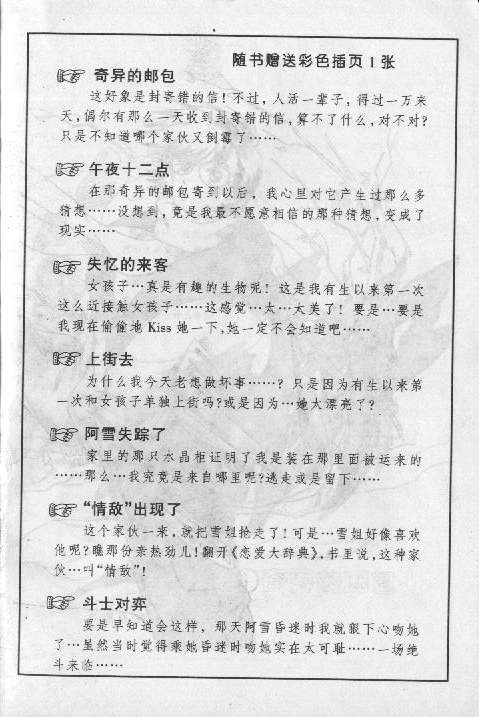 随书赠送彩色插页1张
奇异的邮包
这好象是封寄错的信！不过，人活一辈子，得过一万来
天，偶尔有那么一天收到封寄错的信，算不了什么，对不对？
只是不知道哪个家伙又倒霉了……
午夜十二点
在那奇异的邮包寄到以后，我心里对它产生过那么多
猜想……没想到，竟是我最不愿意相信的那种猜想，变成了
现实……
失忆的来客
女孩子…真是有趣的生物呢！这是我有生以来第一次
这么近接触女孩子……这感觉…太…大美了！要是…要是
我现在偷偷地 Kiss 她一下，她一定不会知道吧……
上街去
为什么我今天老想做坏事……？只是因为有生以来第
一次和女孩子单独上街吗？或是因为…她太漂亮了？
阿雪失踪了
家里的那只水晶柜证明了我是装在那里面被运来的
……那么…我究竟是来自哪里呢？逃走或是留下……
“情敌”出现了
这个家伙一来，就把雪姐抢走了！可是…雪姐好像喜欢
他呢？瞧那份亲热劲儿！翻开《恋爱大辞典》，书里说，这种家
伙…叫“情敌”！
斗士对弈
要是早知道会这样，那天阿雪昏迷时我就狠下心吻她
了…虽然当时觉得乘她昏迷时吻她实在太可耻……一场绝
斗来临……